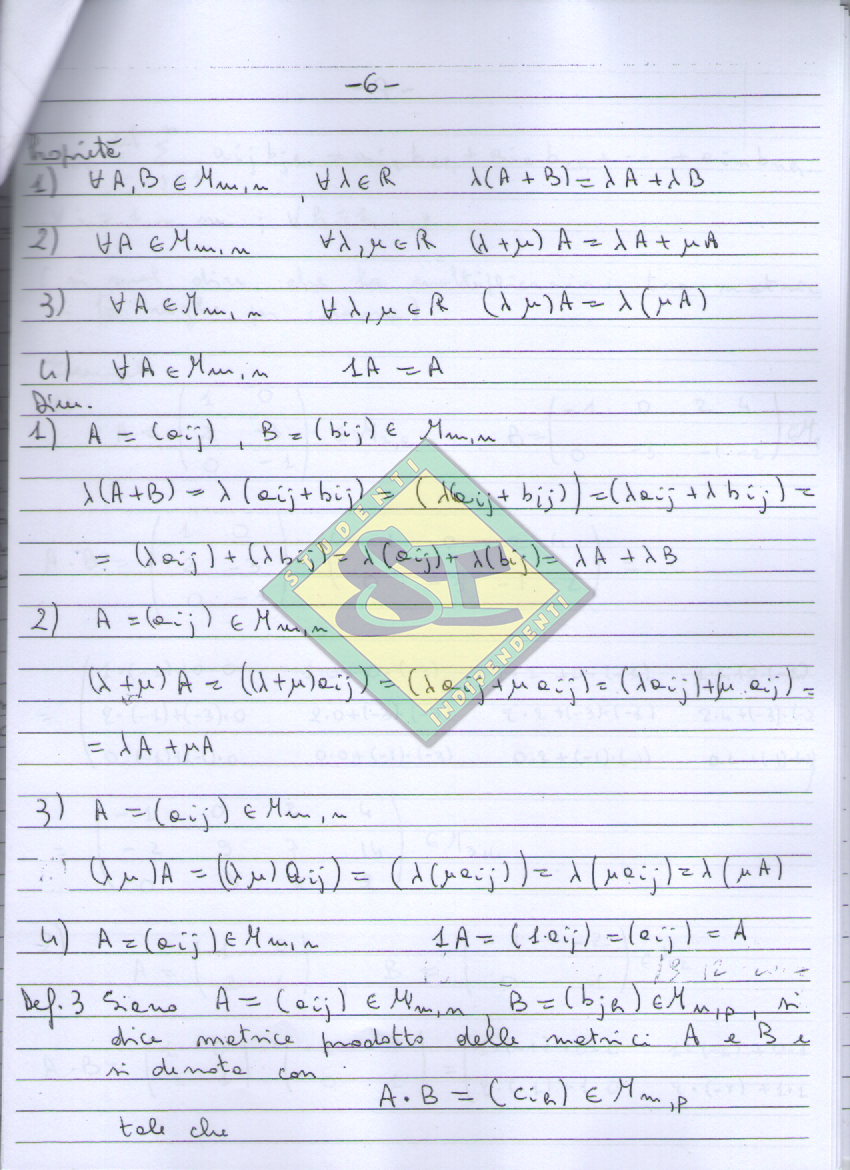 -6-
Proprietà
1) ∀ A, B ∈ Mm,n , ∀ λ ∈ R λ(A + B) = λA + λB
2) ∀ A ∈ Mm,n ∀ λ, μ ∈ R (λ + μ) A = λA + μA
3) ∀ A ∈ Mm,n ∀ λ, μ ∈ R (λ μ)A = λ(μA)
4) ∀ A ∈ Mm,n 1A = A
Dim.
1) A = (aij) , B = (bij) ∈ Mm,n
λ(A+B) = λ (aij + bij) = (λ(aij + bij)) = (λaij + λbij) =
= (λaij) + (λbij) = λ(aij) + λ(bij) = λA + λB
2) A = (aij) ∈ Mm,n
(λ + μ) A = ((λ+μ)aij) = (λaij + μaij) = (λaij) + (μ aij) =
= λA + μA
3) A = (aij) ∈ Mm,n
(λ μ)A = ((λ μ) aij) = (λ(μaij)) = λ(μaij) = λ(μA)
4) A = (aij) ∈ Mm,n 1A = (1·aij) = (aij) = A
Def. 3 Siano A = (aij) ∈ Mm,n B = (bjh) ∈ Mn,p , si
dice matrice prodotto delle matrici A e B e
si denota con
A · B = (cih) ∈ Mm,p
tale che
STUDENTI
SI
INDIPENDENTI